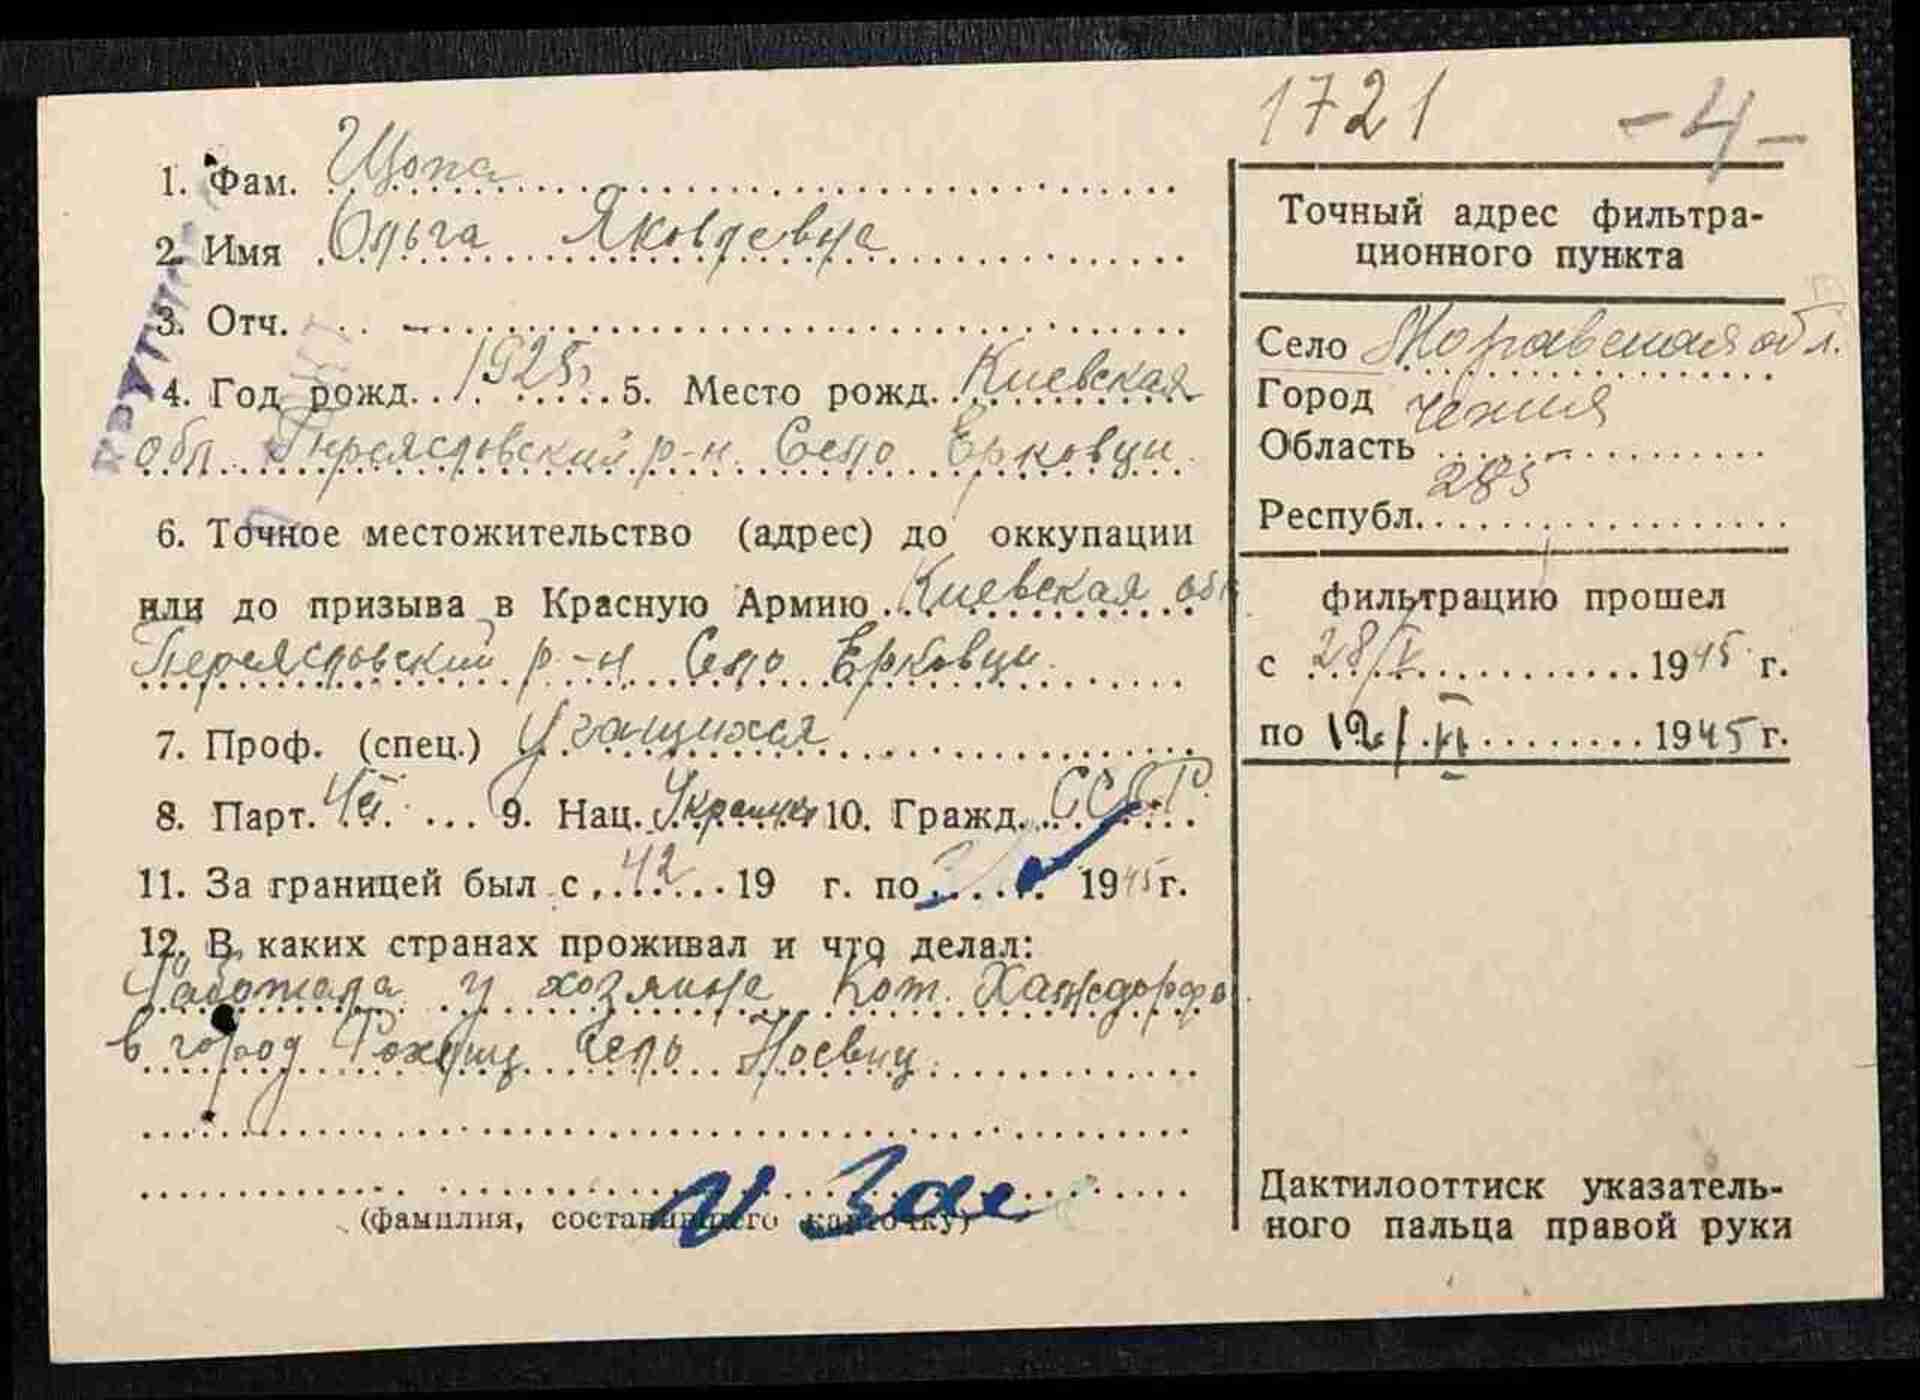 1721 -4-
1. Фам. Щопа
2. Имя Ольга Яковлевна
3. Отч. —
4. Год рожд. 1925г 5. Место рожд. Киевская
обл. Переясловский р-н. Село Ерковци.
6. Точное местожительство (адрес) до оккупации
или до призыва в Красную Армию Киевская обл
Переясловский р-н Село Ерковци.
7. Проф. (спец.) Учащихся
8. Парт. 9. Нац. Украинка 10. Гражд. СССР.
11. За границей был с 42 19 г. по 1945 г.
12. В каких странах проживал и что делал:
Работала у хозяина Кот.
в город Село
(фамилия, составившего карточку)
Точный адрес фильтра-
ционного пункта
Село Моравская обл.
Город Чехия
Область
285
Республ.
фильтрацию прошел
с 28/V 1945 г.
по 12/VI 1945 г.
Дактилооттиск указатель-
ного пальца правой руки